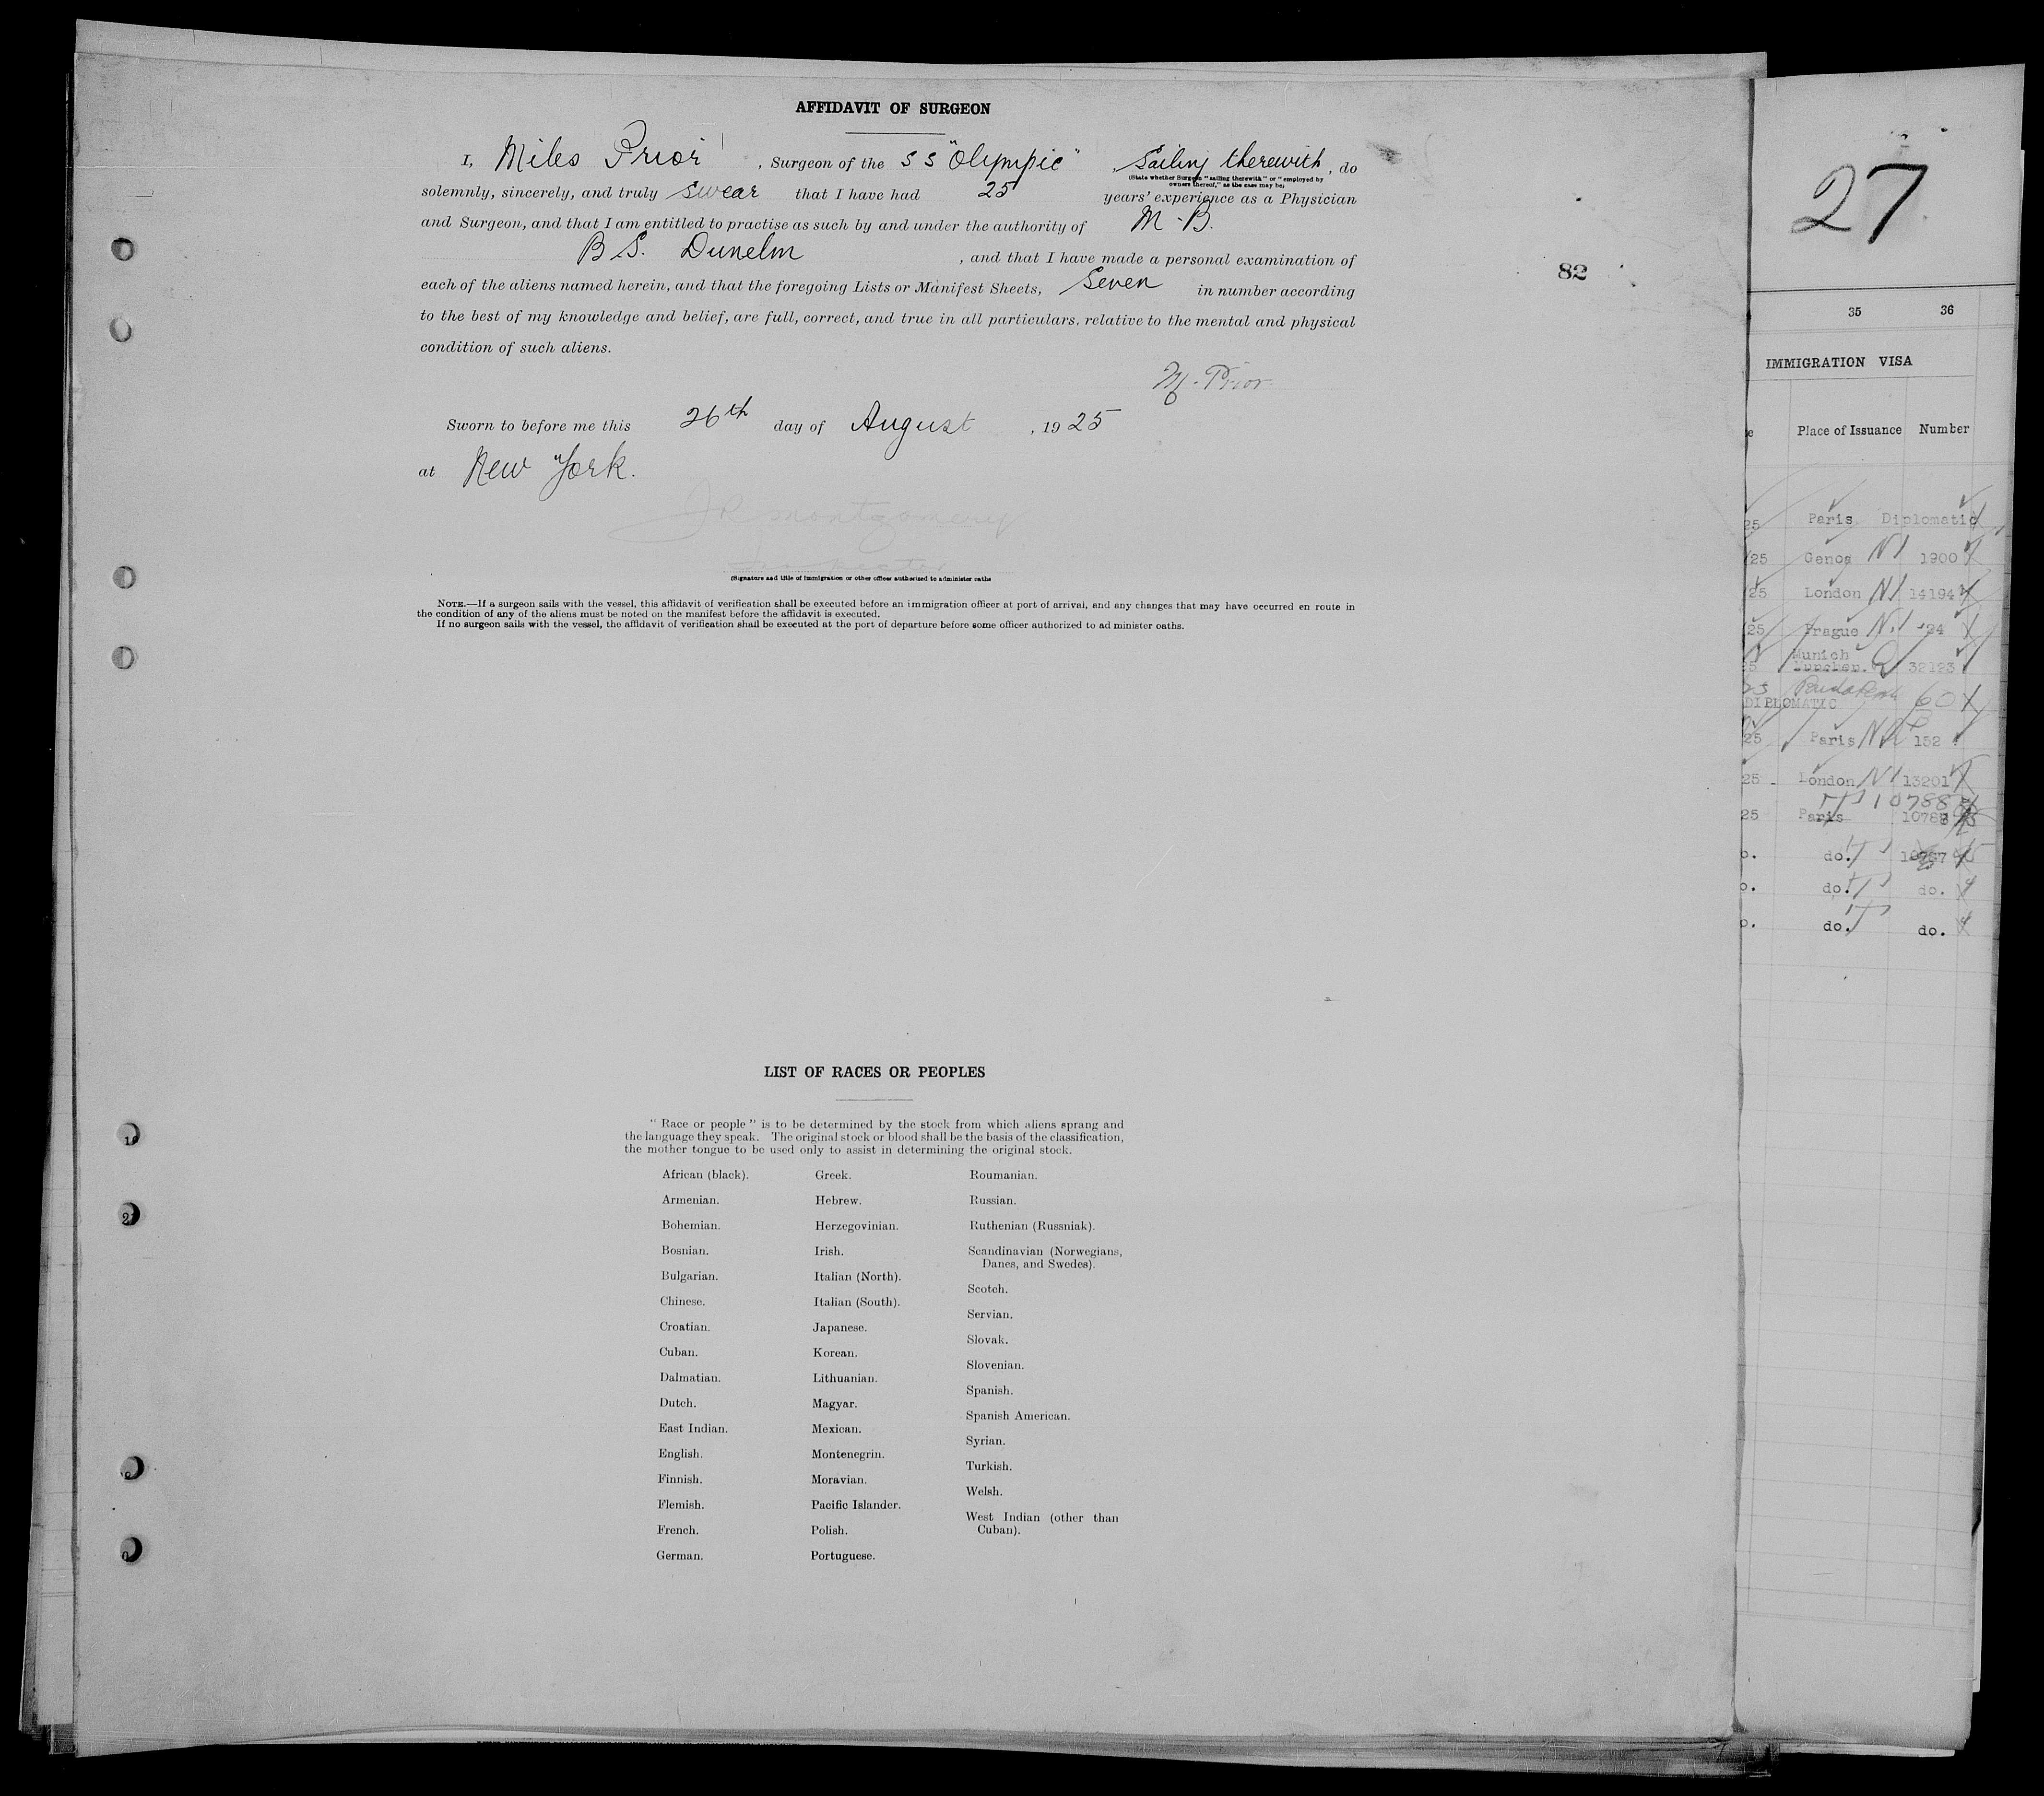 AFFIDAVIT OF SURGEON
I, Miles Prior, Surgeon of the S S "Olympic", Sailing therewith, do
(State whether Surgeon "sailing therewith" or "employed by
owners thereof," as the case may be)
solemnly, sincerely, and truly swear that I have had 25 years' experience as a Physician
and Surgeon, and that I am entitled to practise as such by and under the authority of M. B.
B S. Dunelm, and that I have made a personal examination of
each of the aliens named herein, and that the foregoing Lists or Manifest Sheets, Seven in number according
to the best of my knowledge and belief, are full, correct, and true in all particulars, relative to the mental and physical
condition of such aliens.
M. Prior
Sworn to before me this 26th day of August, 1925
at New York.
J R Montgomery
Inspector
(Signature and title of immigration or other officer authorized to administer oaths
NOTE.—If a surgeon sails with the vessel, this affidavit of verification shall be executed before an immigration officer at port of arrival, and any changes that may have occurred en route in
the condition of any of the aliens must be noted on the manifest before the affidavit is executed.
If no surgeon sails with the vessel, the affidavit of verification shall be executed at the port of departure before some officer authorized to ad minister oaths.
82
LIST OF RACES OR PEOPLES
"Race or people" is to be determined by the stock from which aliens sprang and
the language they speak. The original stock or blood shall be the basis of the classification,
the mother tongue to be used only to assist in determining the original stock.
African (black).
Armenian.
Bohemian.
Bosnian.
Bulgarian.
Chinese.
Croatian.
Cuban.
Dalmatian.
Dutch.
East Indian.
English.
Finnish.
Flemish.
French.
German.
Greek.
Hebrew.
Herzegovinian.
Irish.
Italian (North).
Italian (South).
Japanese.
Korean.
Lithuanian.
Magyar.
Mexican.
Montenegrin.
Moravian.
Pacific Islander.
Polish.
Portuguese.
Roumanian.
Russian.
Ruthenian (Russniak).
Scandinavian (Norwegians,
Danes, and Swedes).
Scotch.
Servian.
Slovak.
Slovenian.
Spanish.
Spanish American.
Syrian.
Turkish.
Welsh.
West Indian (other than
Cuban).
27
35 36
IMMIGRATION VISA
Place of Issuance Number
25 Paris Diplomatic
25 Genoa 1900
25 London 14194
25 Prague 24
Munich
32123
Budapest 60
DIPLOMATIC
25 Paris 152
25 London 13201
10788
25 Paris
do.
do. do.
do. do.